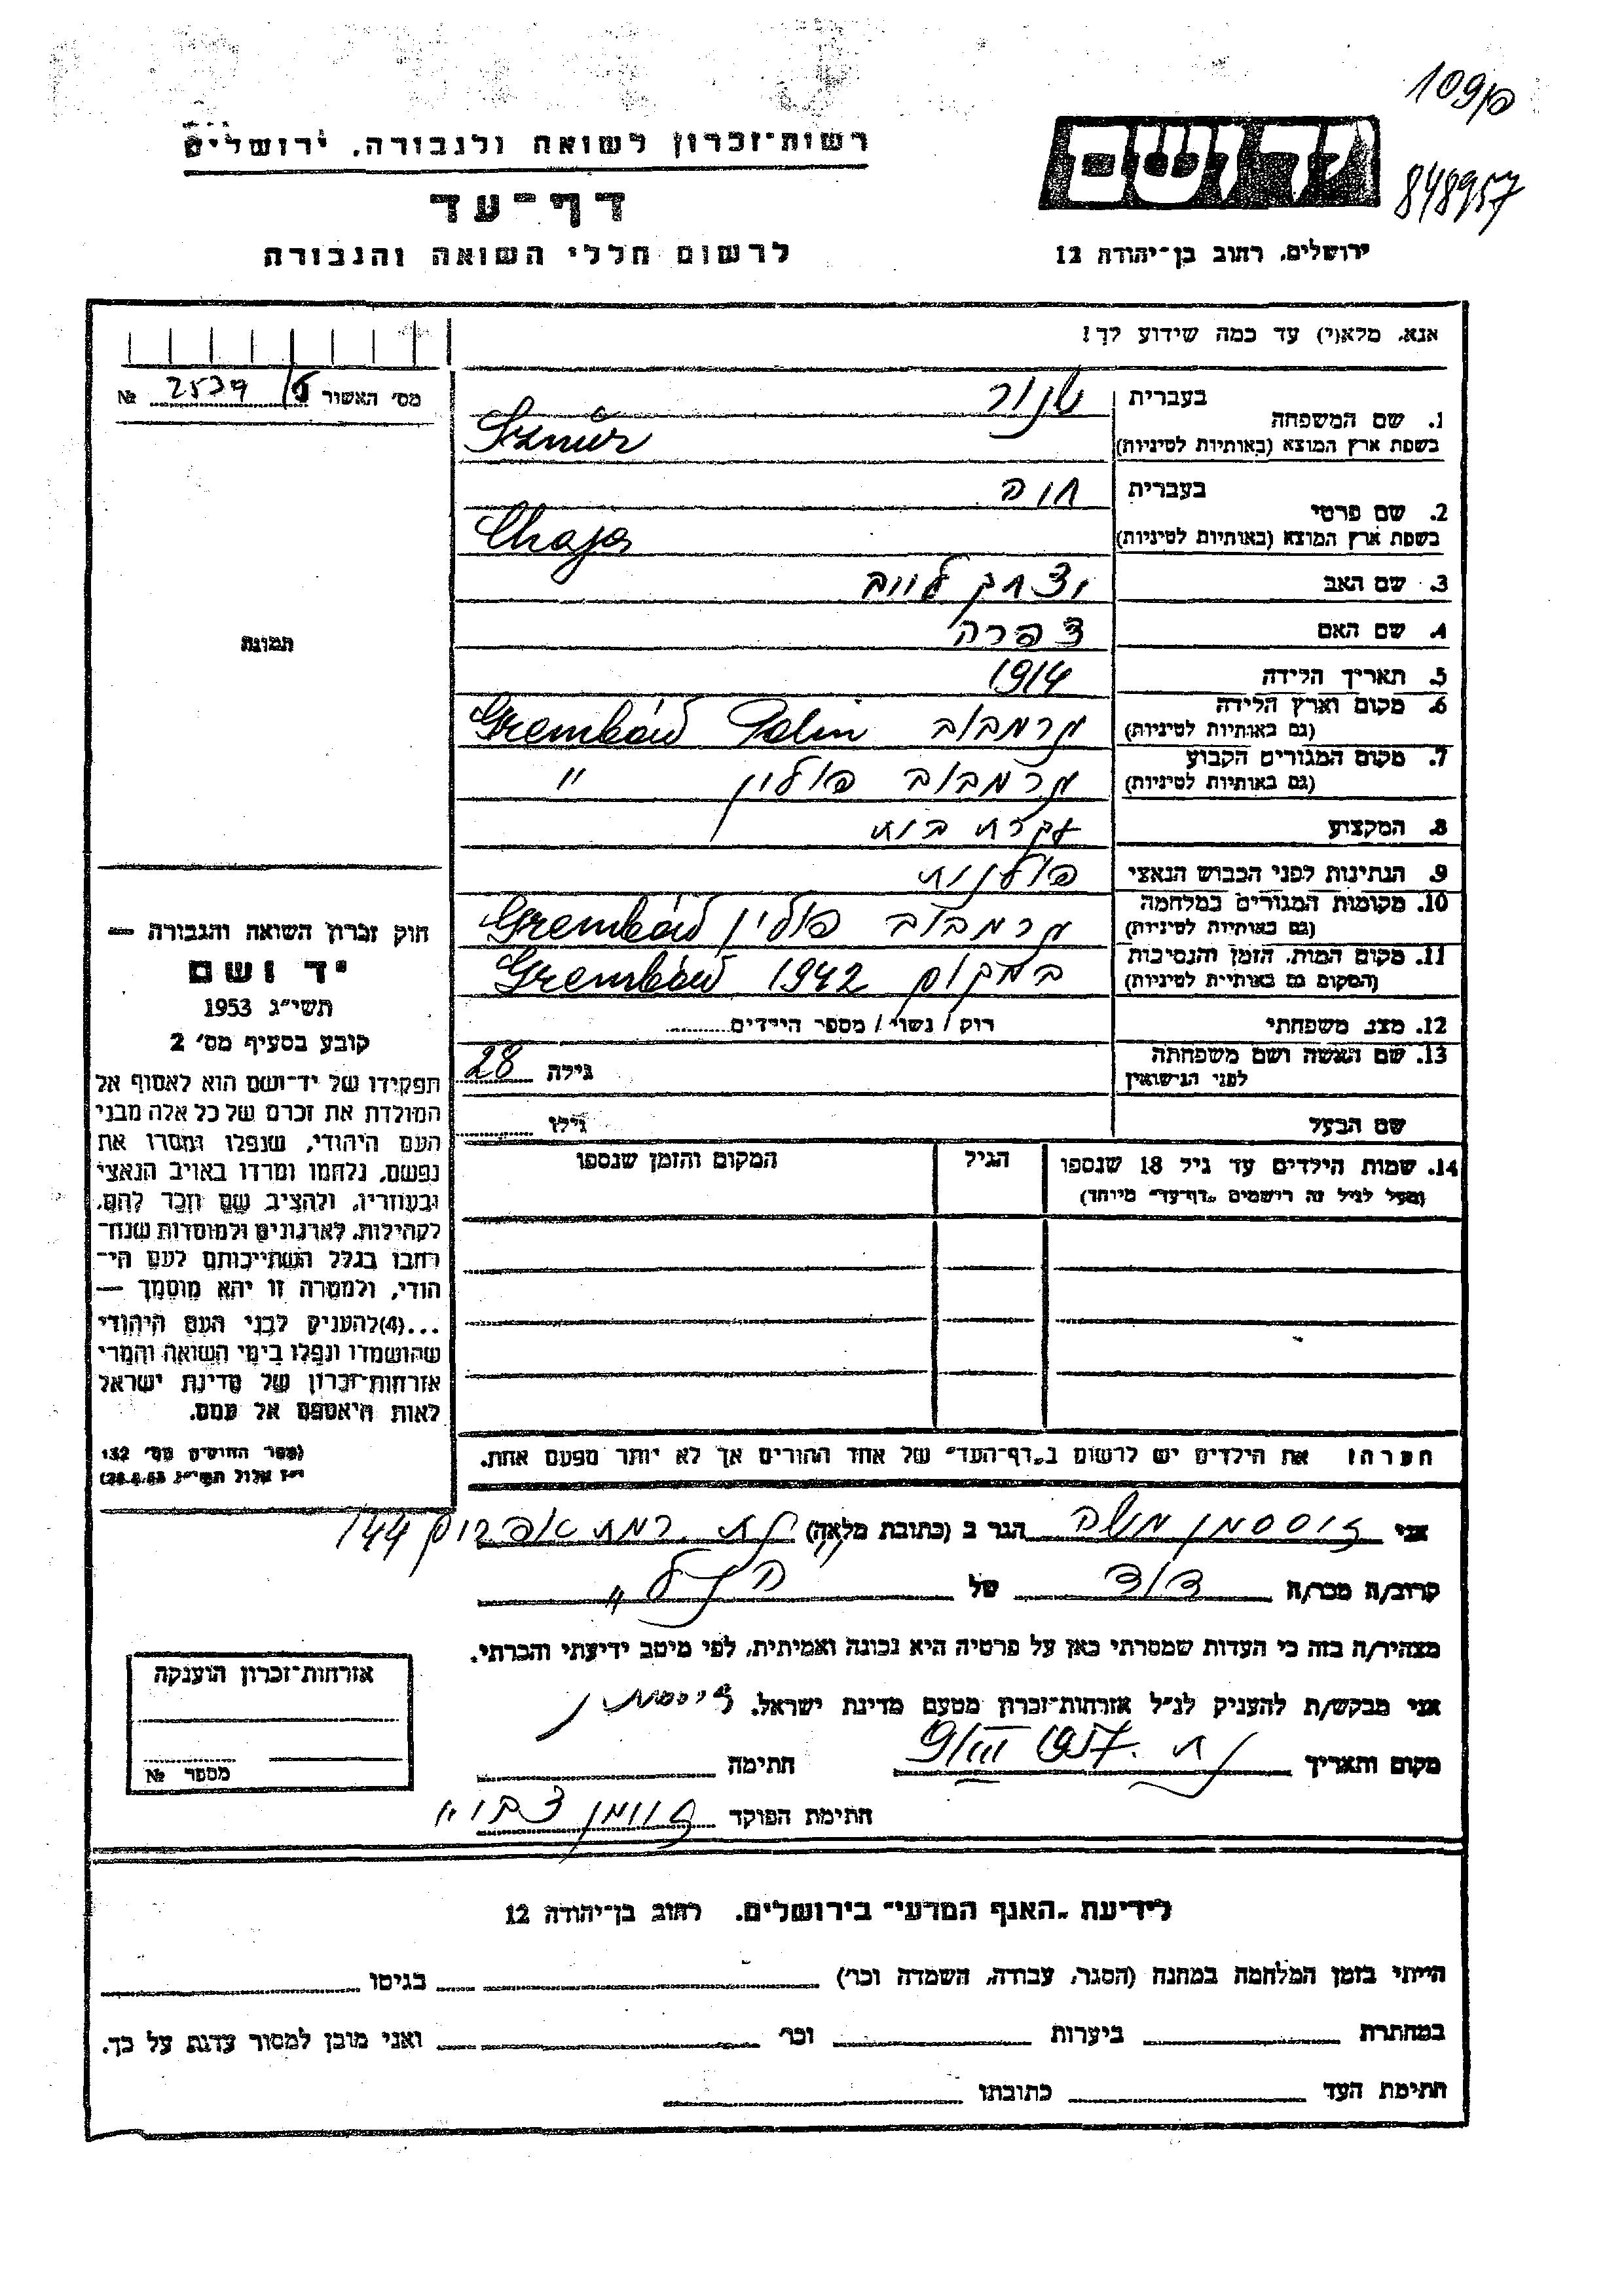 109כ
848957
יד ושם
רשות־זכרון לשואה ולגבורה, ירושלים
דף־עד
לרשום חללי השואה והגבורה
ירושלים, רחוב בן־יהודה 12
אנא, מלא(י) עד כמה שידוע לך!
מס׳ האשור 2539/5 №
1. שם המשפחה
בעברית שנור
בשפת ארץ המוצא (באותיות לטיניות) Sznūr
2. שם פרטי
בעברית חיה
בשפת ארץ המוצא (באותיות לטיניות) Chaja
3. שם האב יצחק לייב
4. שם האם צפרה
5. תאריך הלידה 1914
6. מקום וארץ הלידה גרמבוב Grembów Polin
(גם באותיות לטיניות)
7. מקום המגורים הקבוע גרמבוב פולין "
(גם באותיות לטיניות)
8. המקצוע עקרת בית
9. הנתינות לפני הכבוש הנאצי פולנית
10. מקומות המגורים במלחמה גרמבוב פולין Grembów
(גם באותיות לטיניות)
11. מקום המות, הזמן והנסיבות במקום 1942 Grembów
(המקום גם באותיות לטיניות)
12. מצב משפחתי רוק / נשוי / מספר הילדים
13. שם האשה ושם משפחתה גילה 28
לפני הנישואין
שם הבעל גילו
14. שמות הילדים עד גיל 18 שנספו הגיל המקום והזמן שנספו
(מעל לגיל זה רושמים „דף־עד״ מיוחד)
הערה: את הילדים יש לרשום ב„דף־העד״ של אחד ההורים אך לא יותר מפעם אחת.
תמונה
חוק זכרון השואה והגבורה —
יד ושם
תשי״ג 1953
קובע בסעיף מס׳ 2
תפקידו של יד־ושם הוא לאסוף אל
המולדת את זכרם של כל אלה מבני
העם היהודי, שנפלו ומסרו את
נפשם, נלחמו ומרדו באויב הנאצי
ובעוזריו, ולהציב שם וזכר להם,
לקהילות, לארגונים ולמוסדות שנח־
רבו בגלל השתייכותם לעם הי־
הודי, ולמטרה זו יהא מוסמך —
...(4) להעניק לבני העם היהודי
שהושמדו ונפלו בימי השואה והמרי
אזרחות־זכרון של מדינת ישראל
לאות היאספם אל עמם.
(ספר החוקים מס׳ 132
י״ז אלול תשי״ג 28.8.53)
אני זוסמן משה הגר ב (כתובת מלאה) 144
קרוב/ה מכר/ה דוד של הנ"ל
מצהיר/ה בזה כי העדות שמסרתי כאן על פרטיה היא נכונה ואמיתית, לפי מיטב ידיעתי והכרתי.
אני מבקש/ת להעניק לנ״ל אזרחות־זכרון מטעם מדינת ישראל.
מקום ותאריך 9/III 1957 חתימה
חתימת הפוקד
אזרחות־זכרון הוענקה
מספר №
לידיעת „האגף המדעי״ בירושלים, רחוב בן־יהודה 12
הייתי בזמן המלחמה במחנה (הסגר, עבודה, השמדה וכו׳) בגיטו
במחתרת ביערות וכו׳ ואני מוכן למסור עדות על כך.
חתימת העד כתובתו